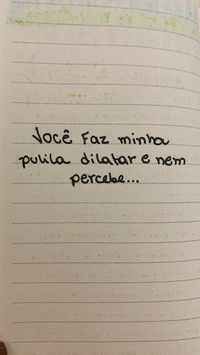 Você Faz minha
pulila dilatar e nem
percebe...